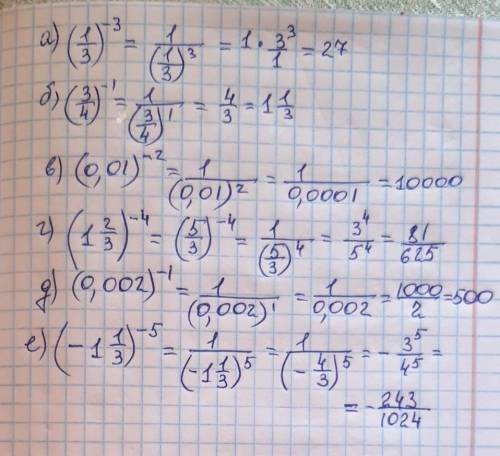 а) (1/3)^-3 = 1/(1/3)^3 = 1 · 3^3/1 = 27
б) (3/4)^-1 = 1/(3/4)^1 = 4/3 = 1 1/3
в) (0,01)^-2 = 1/(0,01)^2 = 1/0,0001 = 10000
г) (1 2/3)^-4 = (5/3)^-4 = 1/(5/3)^4 = 3^4/5^4 = 81/625
д) (0,002)^-1 = 1/(0,002)^1 = 1/0,002 = 1000/2 = 500
е) (-1 1/3)^-5 = 1/(-1 1/3)^5 = 1/(-4/3)^5 = - 3^5/4^5 =
= - 243/1024